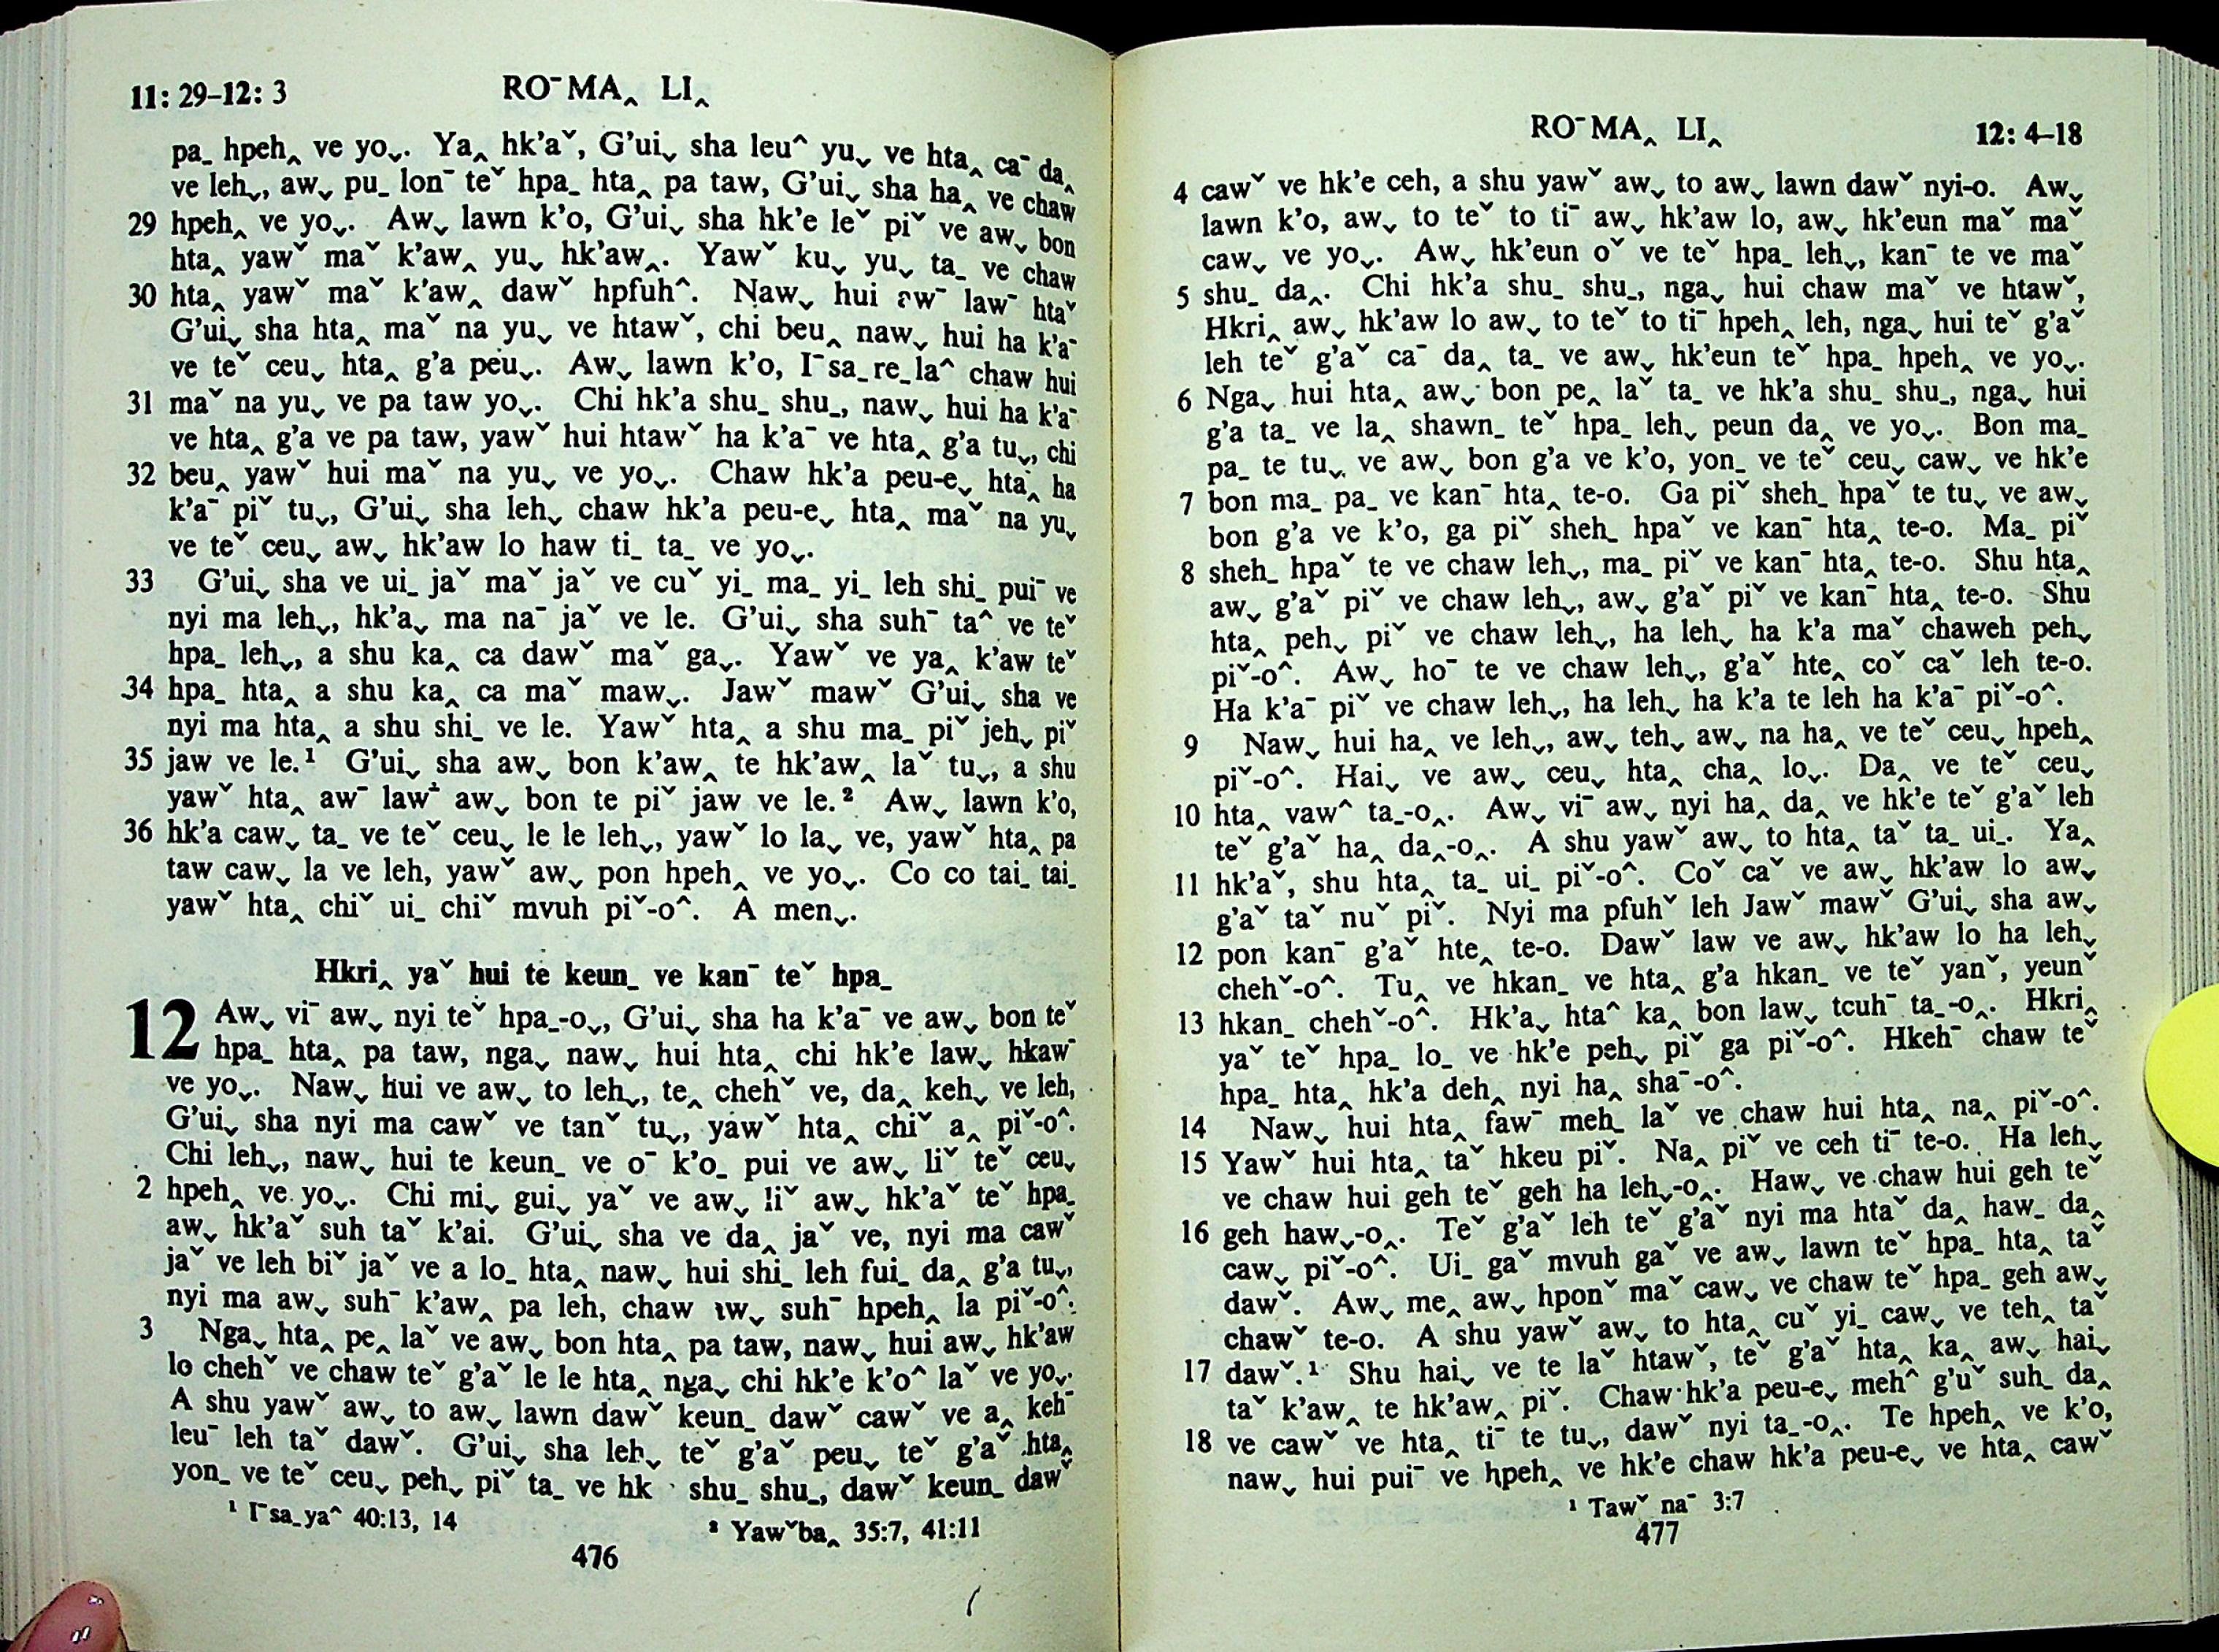 11: 29–12: 3
RO¯MA‸ LI‸
pa_ hpeh‸ ve yoˬ. Ya‸ hk'aˇ, G'uiˬ sha leu^ yuˬ ve hta‸ ca¯ da‸
ve lehˬ, awˬ pu_ lon¯ teˇ hpa_ hta‸ pa taw, G'uiˬ sha ha‸ ve chaw
29 hpeh‸ ve yoˬ. Awˬ lawn k'o, G'uiˬ sha hk'e leˇ piˇ ve awˬ bon
hta‸ yawˇ maˇ k'aw‸ yuˬ hk'aw‸. Yawˇ kuˬ yuˬ ta_ ve chaw
30 hta‸ yawˇ maˇ k'aw‸ dawˇ hpfuh^. Nawˬ hui aw¯ law¯ htaˇ
G'uiˬ sha hta‸ maˇ na yuˬ ve htawˇ, chi beu‸ nawˬ hui ha k'a¯
ve teˇ ceuˬ hta‸ g'a peuˬ. Awˬ lawn k'o, I¯sa_re_la^ chaw hui
31 maˇ na yuˬ ve pa taw yoˬ. Chi hk'a shu_ shu_, nawˬ hui ha k'a¯
ve hta‸ g'a ve pa taw, yawˇ hui htawˇ ha k'a¯ ve hta‸ g'a tuˬ, chi
32 beu‸ yawˇ hui maˇ na yuˬ ve yoˬ. Chaw hk'a peu-eˬ hta‸ ha
k'a¯ piˇ tuˬ, G'uiˬ sha lehˬ chaw hk'a peu-eˬ hta‸ maˇ na yuˬ
ve teˇ ceuˬ awˬ hk'aw lo haw ti_ ta_ ve yoˬ.
33 G'uiˬ sha ve ui_ jaˇ maˇ jaˇ ve cuˇ yi_ ma_ yi_ leh shi_ pui¯ ve
nyi ma lehˬ, hk'aˬ ma na¯ jaˇ ve le. G'uiˬ sha suh¯ ta^ ve teˇ
hpa_ lehˬ, a shu ka‸ ca dawˇ maˇ gaˬ. Yawˇ ve ya‸ k'aw teˇ
34 hpa_ hta‸ a shu ka‸ ca maˇ mawˬ. Jawˇ mawˇ G'uiˬ sha ve
nyi ma hta‸ a shu shi_ ve le. Yawˇ hta‸ a shu ma_ piˇ jehˬ piˇ
35 jaw ve le.¹ G'uiˬ sha awˬ bon k'aw‸ te hk'aw‸ laˇ tuˬ, a shu
yawˇ hta‸ aw¯ law¯ awˬ bon te piˇ jaw ve le.² Awˬ lawn k'o,
36 hk'a cawˬ ta_ ve teˇ ceuˬ le le lehˬ, yawˇ lo laˬ ve, yawˇ hta‸ pa
taw cawˬ la ve leh, yawˇ awˬ pon hpeh‸ ve yoˬ. Co co tai_ tai_
yawˇ hta‸ chiˇ ui_ chiˇ mvuh piˇ-o^. A menˬ.
Hkri‸ yaˇ hui te keun_ ve kan¯ teˇ hpa_
12 Awˬ vi¯ awˬ nyi teˇ hpa_-oˬ, G'uiˬ sha ha k'a¯ ve awˬ bon teˇ
hpa_ hta‸ pa taw, ngaˬ nawˬ hui hta‸ chi hk'e lawˬ hkaw¯
ve yoˬ. Nawˬ hui ve awˬ to lehˬ, te‸ chehˇ ve, da‸ kehˬ ve leh,
G'uiˬ sha nyi ma cawˇ ve tanˇ tuˬ, yawˇ hta‸ chiˇ a‸ piˇ-o^.
Chi lehˬ, nawˬ hui te keun_ ve o¯ k'o_ pui ve awˬ liˇ teˇ ceuˬ
2 hpeh‸ ve yoˬ. Chi miˬ guiˬ yaˇ ve awˬ liˇ awˬ hk'aˇ teˇ hpa_
awˬ hk'aˇ suh taˇ k'ai. G'uiˬ sha ve da‸ jaˇ ve, nyi ma cawˇ
jaˇ ve leh biˇ jaˇ ve a lo_ hta‸ nawˬ hui shi_ leh fui_ da‸ g'a tuˬ,
nyi ma awˬ suh¯ k'aw‸ pa leh, chaw awˬ suh¯ hpeh‸ la piˇ-o^.
3 Ngaˬ hta‸ pe‸ laˇ ve awˬ bon hta‸ pa taw, nawˬ hui awˬ hk'aw
lo chehˇ ve chaw teˇ g'aˇ le le hta‸ ngaˬ chi hk'e k'o^ laˇ ve yoˬ.
A shu yawˇ awˬ to awˬ lawn dawˇ keun_ dawˇ cawˇ ve a‸ keh¯
leu¯ leh taˇ dawˇ. G'uiˬ sha lehˬ teˇ g'aˇ peuˬ teˇ g'aˇ hta‸
yon_ ve teˇ ceuˬ pehˬ piˇ ta_ ve hk shu_ shu_, dawˇ keun_ dawˇ
¹ I¯sa_ya^ 40:13, 14
² Yawˇba‸ 35:7, 41:11
476
RO¯MA‸ LI‸
12: 4–18
4 cawˇ ve hk'e ceh, a shu yawˇ awˬ to awˬ lawn dawˇ nyi-o. Awˬ
lawn k'o, awˬ to teˇ to ti¯ awˬ hk'aw lo, awˬ hk'eun maˇ maˇ
cawˬ ve yoˬ. Awˬ hk'eun oˇ ve teˇ hpa_ lehˬ, kan¯ te ve maˇ
5 shu_ da‸. Chi hk'a shu_ shu_, ngaˬ hui chaw maˇ ve htawˇ,
Hkri‸ awˬ hk'aw lo awˬ to teˇ to ti¯ hpeh‸ leh, ngaˬ hui teˇ g'aˇ
leh teˇ g'aˇ ca¯ da‸ ta_ ve awˬ hk'eun teˇ hpa_ hpeh‸ ve yoˬ.
6 Ngaˬ hui hta‸ awˬ bon pe‸ laˇ ta_ ve hk'a shu_ shu_, ngaˬ hui
g'a ta_ ve la‸ shawn_ teˇ hpa_ lehˬ peun da‸ ve yoˬ. Bon ma_
pa_ te tuˬ ve awˬ bon g'a ve k'o, yon_ ve teˇ ceuˬ cawˬ ve hk'e
7 bon ma_ pa_ ve kan¯ hta‸ te-o. Ga piˇ sheh_ hpaˇ te tuˬ ve awˬ
bon g'a ve k'o, ga piˇ sheh_ hpaˇ ve kan¯ hta‸ te-o. Ma_ piˇ
8 sheh_ hpaˇ te ve chaw lehˬ, ma_ piˇ ve kan¯ hta‸ te-o. Shu hta‸
awˬ g'aˇ piˇ ve chaw lehˬ, awˬ g'aˇ piˇ ve kan¯ hta‸ te-o. Shu
hta‸ pehˬ piˇ ve chaw lehˬ, ha lehˬ ha k'a maˇ chaweh pehˬ
piˇ-o^. Awˬ ho¯ te ve chaw lehˬ, g'aˇ hte‸ coˇ caˇ leh te-o.
Ha k'a¯ piˇ ve chaw lehˬ, ha lehˬ ha k'a te leh ha k'a¯ piˇ-o^.
9 Nawˬ hui ha‸ ve lehˬ, awˬ tehˬ awˬ na ha‸ ve teˇ ceuˬ hpeh‸
piˇ-o^. Haiˬ ve awˬ ceuˬ hta‸ cha‸ loˬ. Da‸ ve teˇ ceuˬ
10 hta‸ vaw^ ta_-o‸. Awˬ vi¯ awˬ nyi ha‸ da‸ ve hk'e teˇ g'aˇ leh
teˇ g'aˇ ha‸ da‸-o‸. A shu yawˇ awˬ to hta‸ taˇ ta_ ui_. Ya‸
11 hk'aˇ, shu hta‸ ta_ ui_ piˇ-o^. Coˇ caˇ ve awˬ hk'aw lo awˬ
g'aˇ taˇ nuˇ piˇ. Nyi ma pfuhˇ leh Jawˇ mawˇ G'uiˬ sha awˬ
12 pon kan¯ g'aˇ hte‸ te-o. Dawˇ law ve awˬ hk'aw lo ha lehˬ
chehˇ-o^. Tu‸ ve hkan_ ve hta‸ g'a hkan_ ve teˇ yanˇ, yeunˇ
13 hkan_ chehˇ-o^. Hk'aˬ hta^ ka‸ bon lawˬ tcuh¯ ta_-o‸. Hkri‸
yaˇ teˇ hpa_ lo_ ve hk'e pehˬ piˇ ga piˇ-o^. Hkeh¯ chaw teˇ
hpa_ hta‸ hk'a deh‸ nyi ha‸ sha¯-o^.
14 Nawˬ hui hta‸ faw¯ meh_ laˇ ve chaw hui hta‸ na‸ piˇ-o^.
15 Yawˇ hui hta‸ taˇ hkeu piˇ. Na‸ piˇ ve ceh ti¯ te-o. Ha lehˬ
ve chaw hui geh teˇ geh ha lehˬ-o‸. Hawˬ ve chaw hui geh teˇ
16 geh hawˬ-o‸. Teˇ g'aˇ leh teˇ g'aˇ nyi ma htaˇ da‸ haw_ da‸
cawˬ piˇ-o^. Ui_ gaˇ mvuh gaˇ ve awˬ lawn teˇ hpa_ hta‸ taˇ
dawˇ. Awˬ me‸ awˬ hponˇ maˇ cawˬ ve chaw teˇ hpa_ geh awˬ
chawˇ te-o. A shu yawˇ awˬ to hta‸ cuˇ yi_ cawˬ ve teh‸ taˇ
17 dawˇ.¹ Shu haiˬ ve te laˇ htawˇ, teˇ g'aˇ hta‸ ka‸ awˬ haiˬ
taˇ k'aw‸ te hk'aw‸ piˇ. Chaw hk'a peu-eˬ meh^ g'uˇ suh_ da‸
18 ve cawˇ ve hta‸ ti¯ te tuˬ, dawˇ nyi ta_-o‸. Te hpeh‸ ve k'o,
nawˬ hui pui¯ ve hpeh‸ ve hk'e chaw hk'a peu-eˬ ve hta‸ cawˇ
¹ Tawˇ na¯ 3:7
477